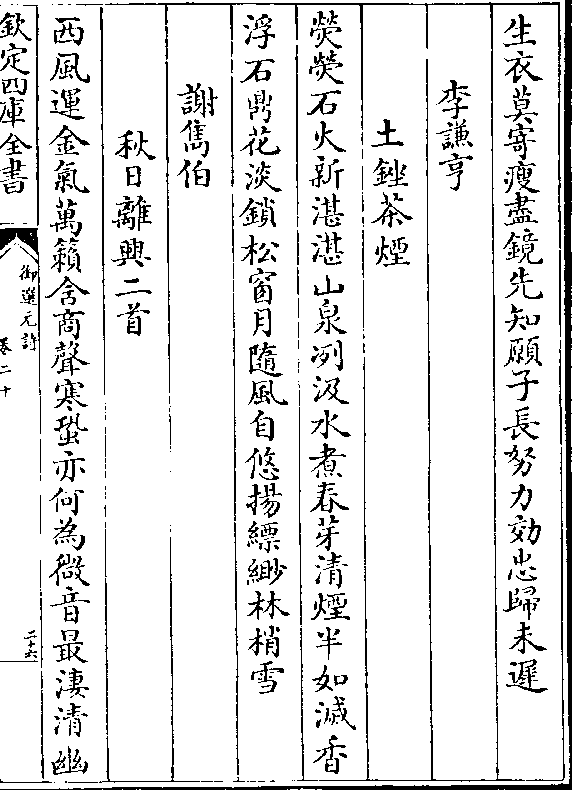 生衣莫寄瘦盡鏡先知願子長努力効忠歸未遲
李謙亨
土銼茶煙
熒熒石火新湛湛山泉冽汲水煮春芽清煙半如滅香
浮石鼎花淡鎖松窗月隨風自悠揚縹緲林梢雪
謝雋伯
秋日離興二首
西風運金氣萬籟含商聲寒蛩亦何為微音最淒清幽
欽定四庫全書
御選元詩
卷二十
二十六